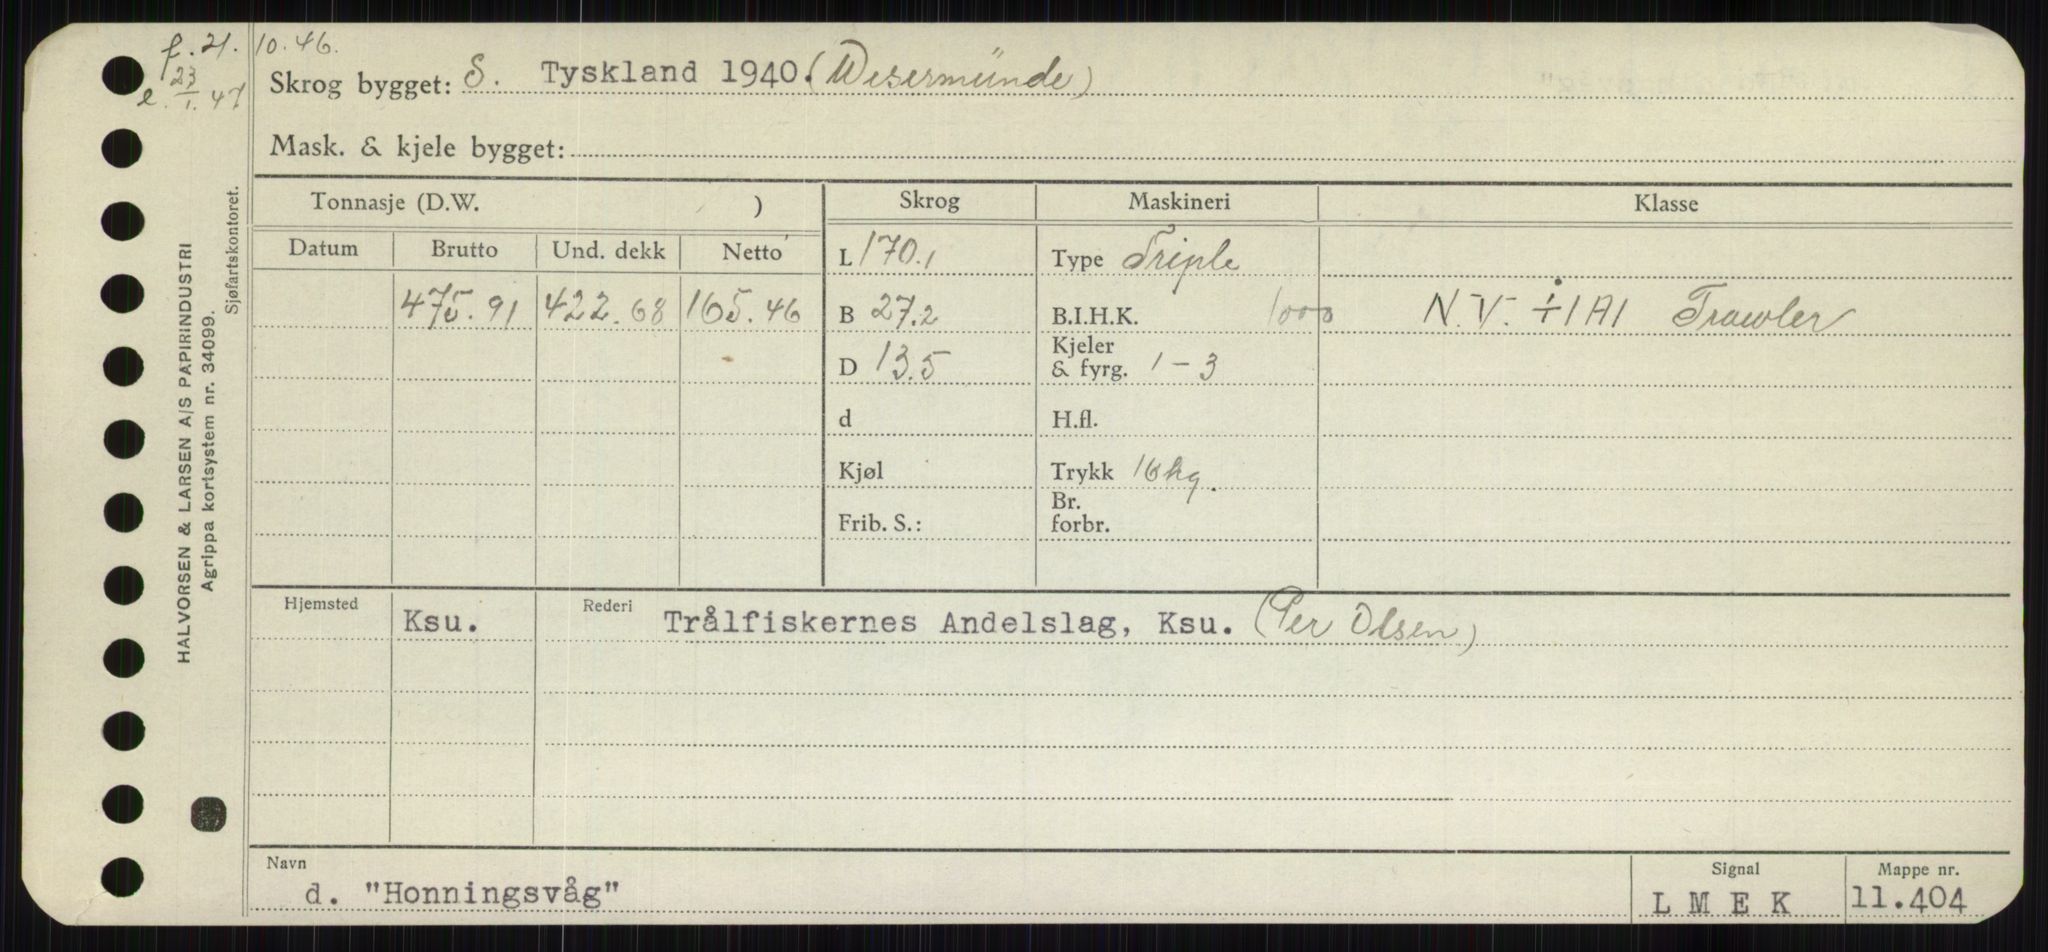 f. 21. 10. 46.
e. 23/1. 47
Skrog bygget: S. Tyskland 1940. (Wesermünde)
Mask. & kjele bygget:
HALVORSEN & LARSEN A/S PAPIRINDUSTRI
Agrippa kortsystem nr. 34099.
Sjøfartskontoret.
Tonnasje (D.W. ) Skrog Maskineri Klasse
Datum Brutto Und. dekk Netto L 170.1 Type Triple
475.91 422.68 165.46 B 27.2 B.I.H.K. 1000 N.V. ∔1A1 Trawler
D 13.5 Kjeler & fyrg. 1 – 3
d H.fl.
Kjøl Trykk 16 kg.
Frib. S.: Br. forbr.
Hjemsted Ksu. Rederi Trålfiskernes Andelslag, Ksu. (Per Olsen)
Navn Signal Mappe nr.
d. "Honningsvåg" L M E K 11.404